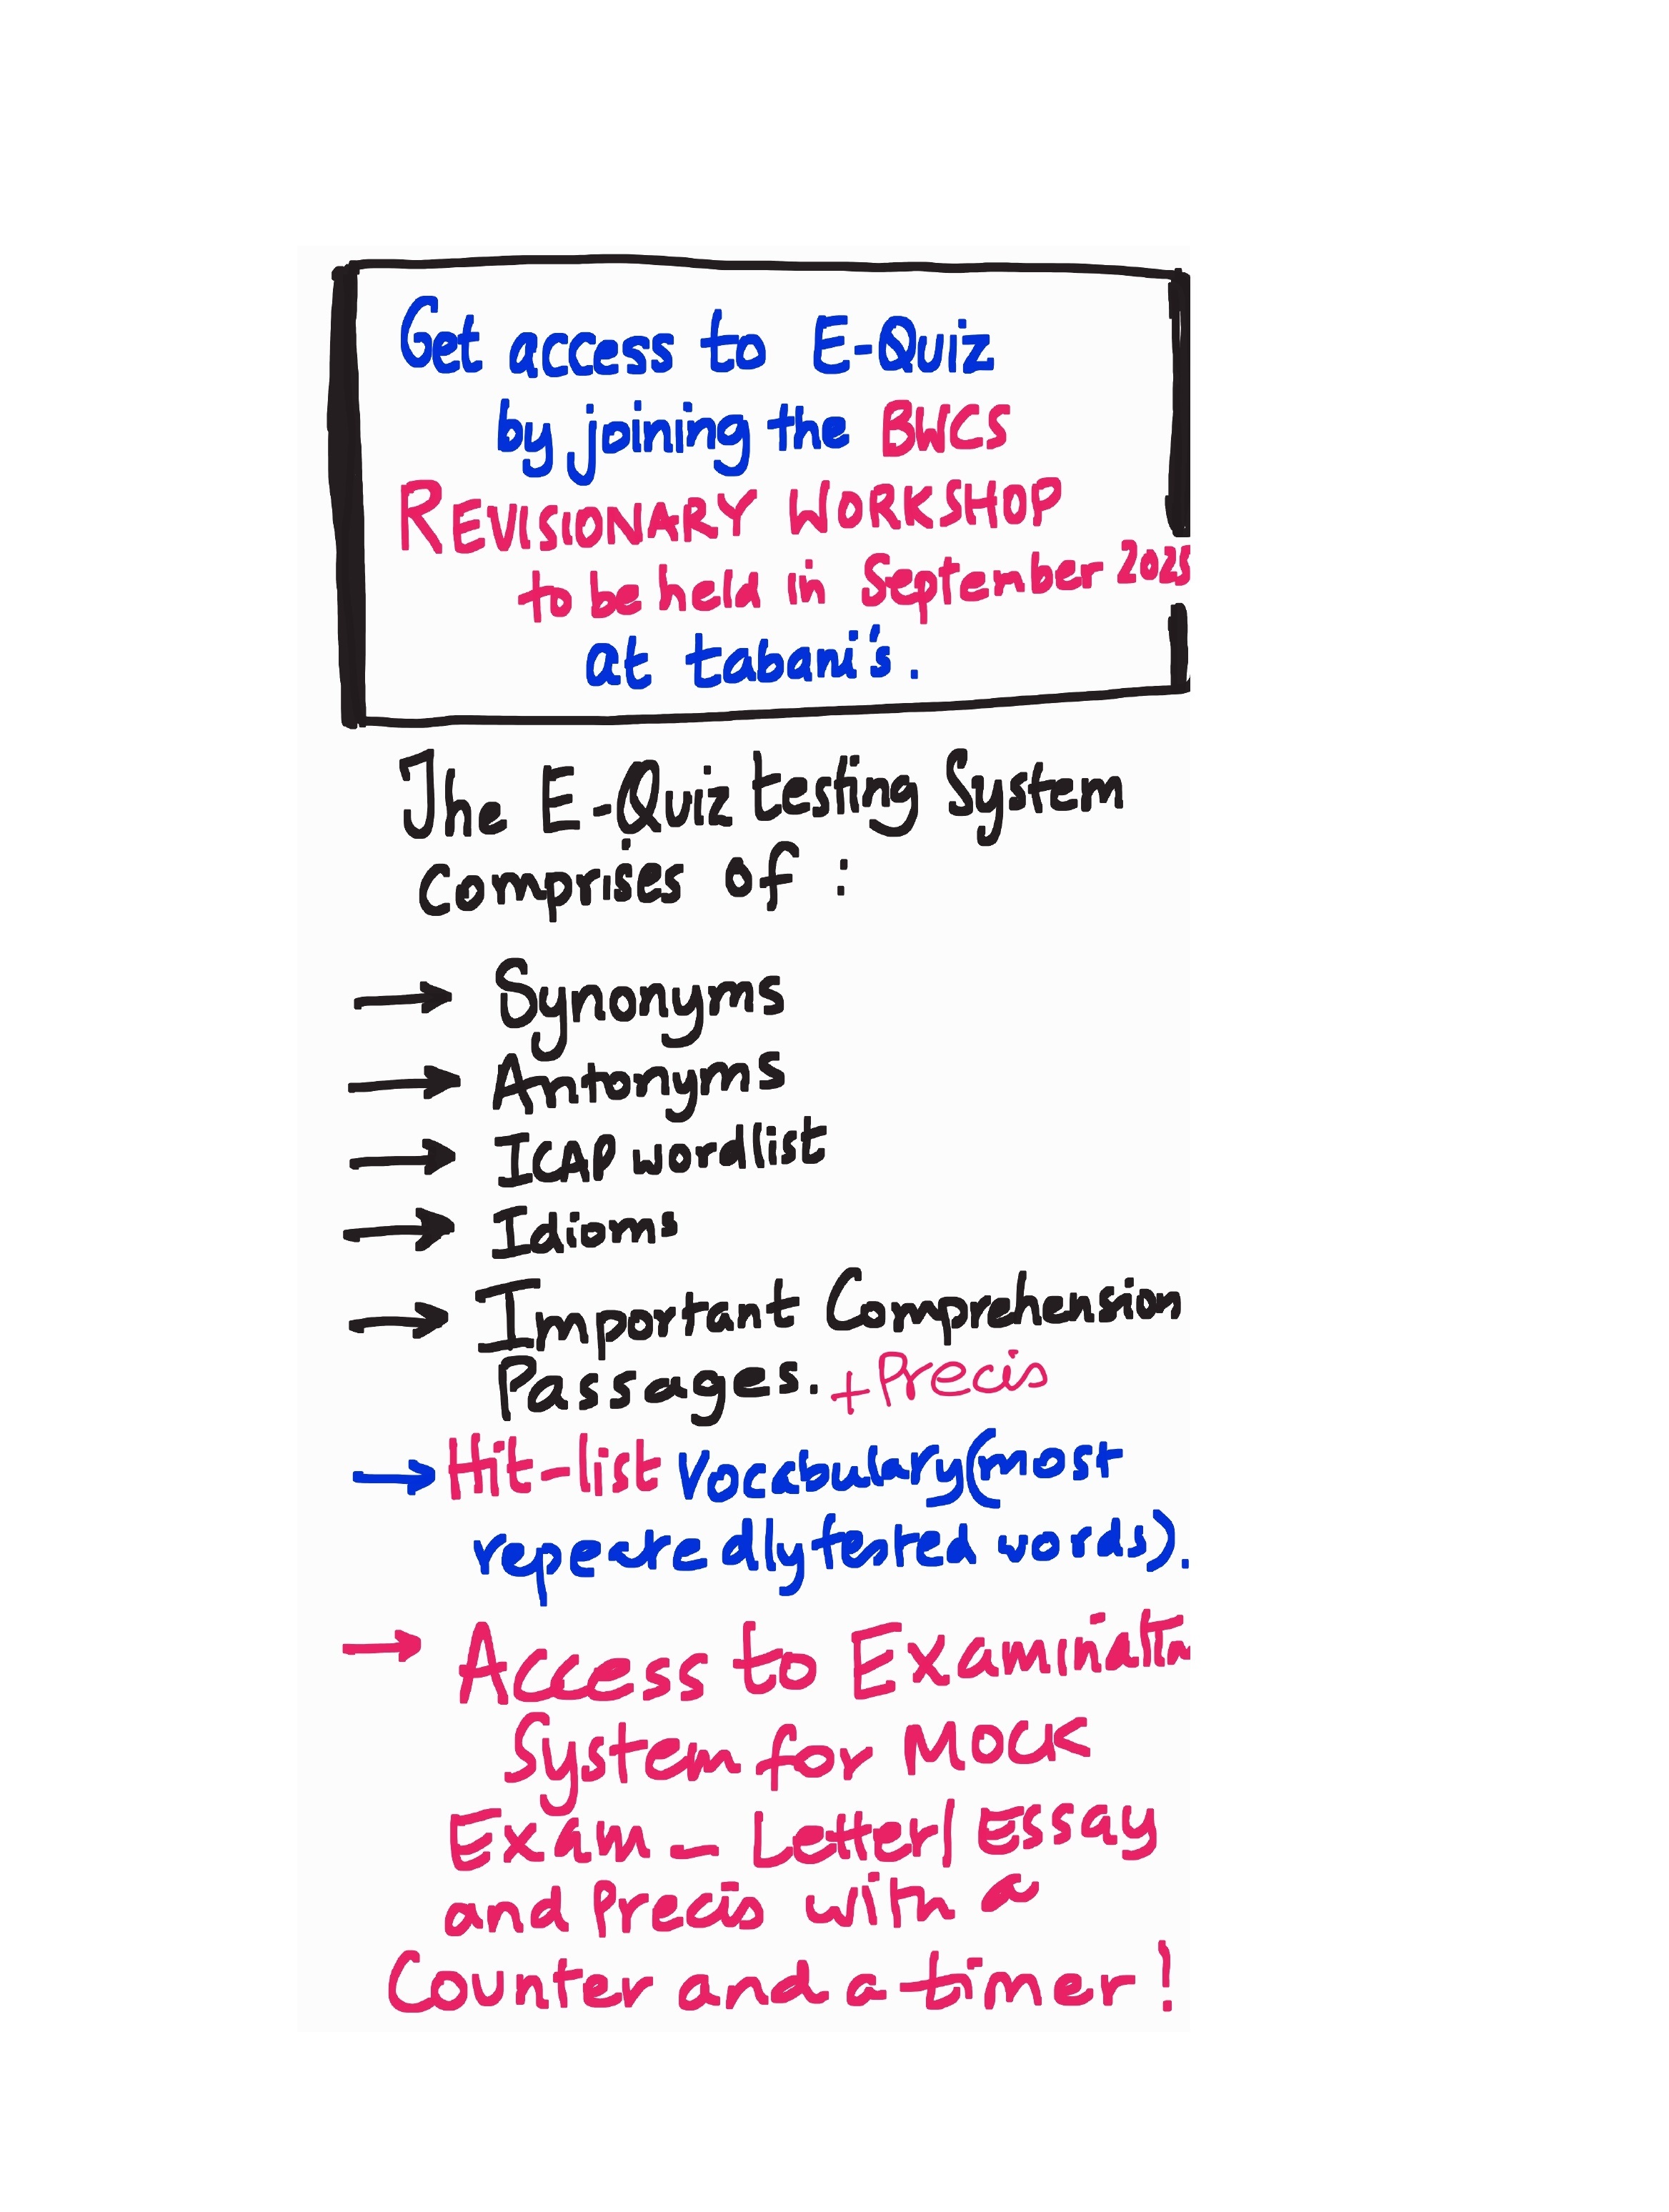 Get access to E-Quiz
by joining the BWCS
REVISIONARY WORKSHOP
to be held in September 2025
at tabani's.
The E-Quiz testing System
comprises of :
→ Synonyms
→ Antonyms
→ ICAP wordlist
→ Idioms
→ Important Comprehension
Passages. + Precis
→ Hit-list Vocabulary (most
repeatedly tested words).
→ Access to Examination
System for MOCK
Exam - Letter/Essay
and Precis with a
Counter and a timer!